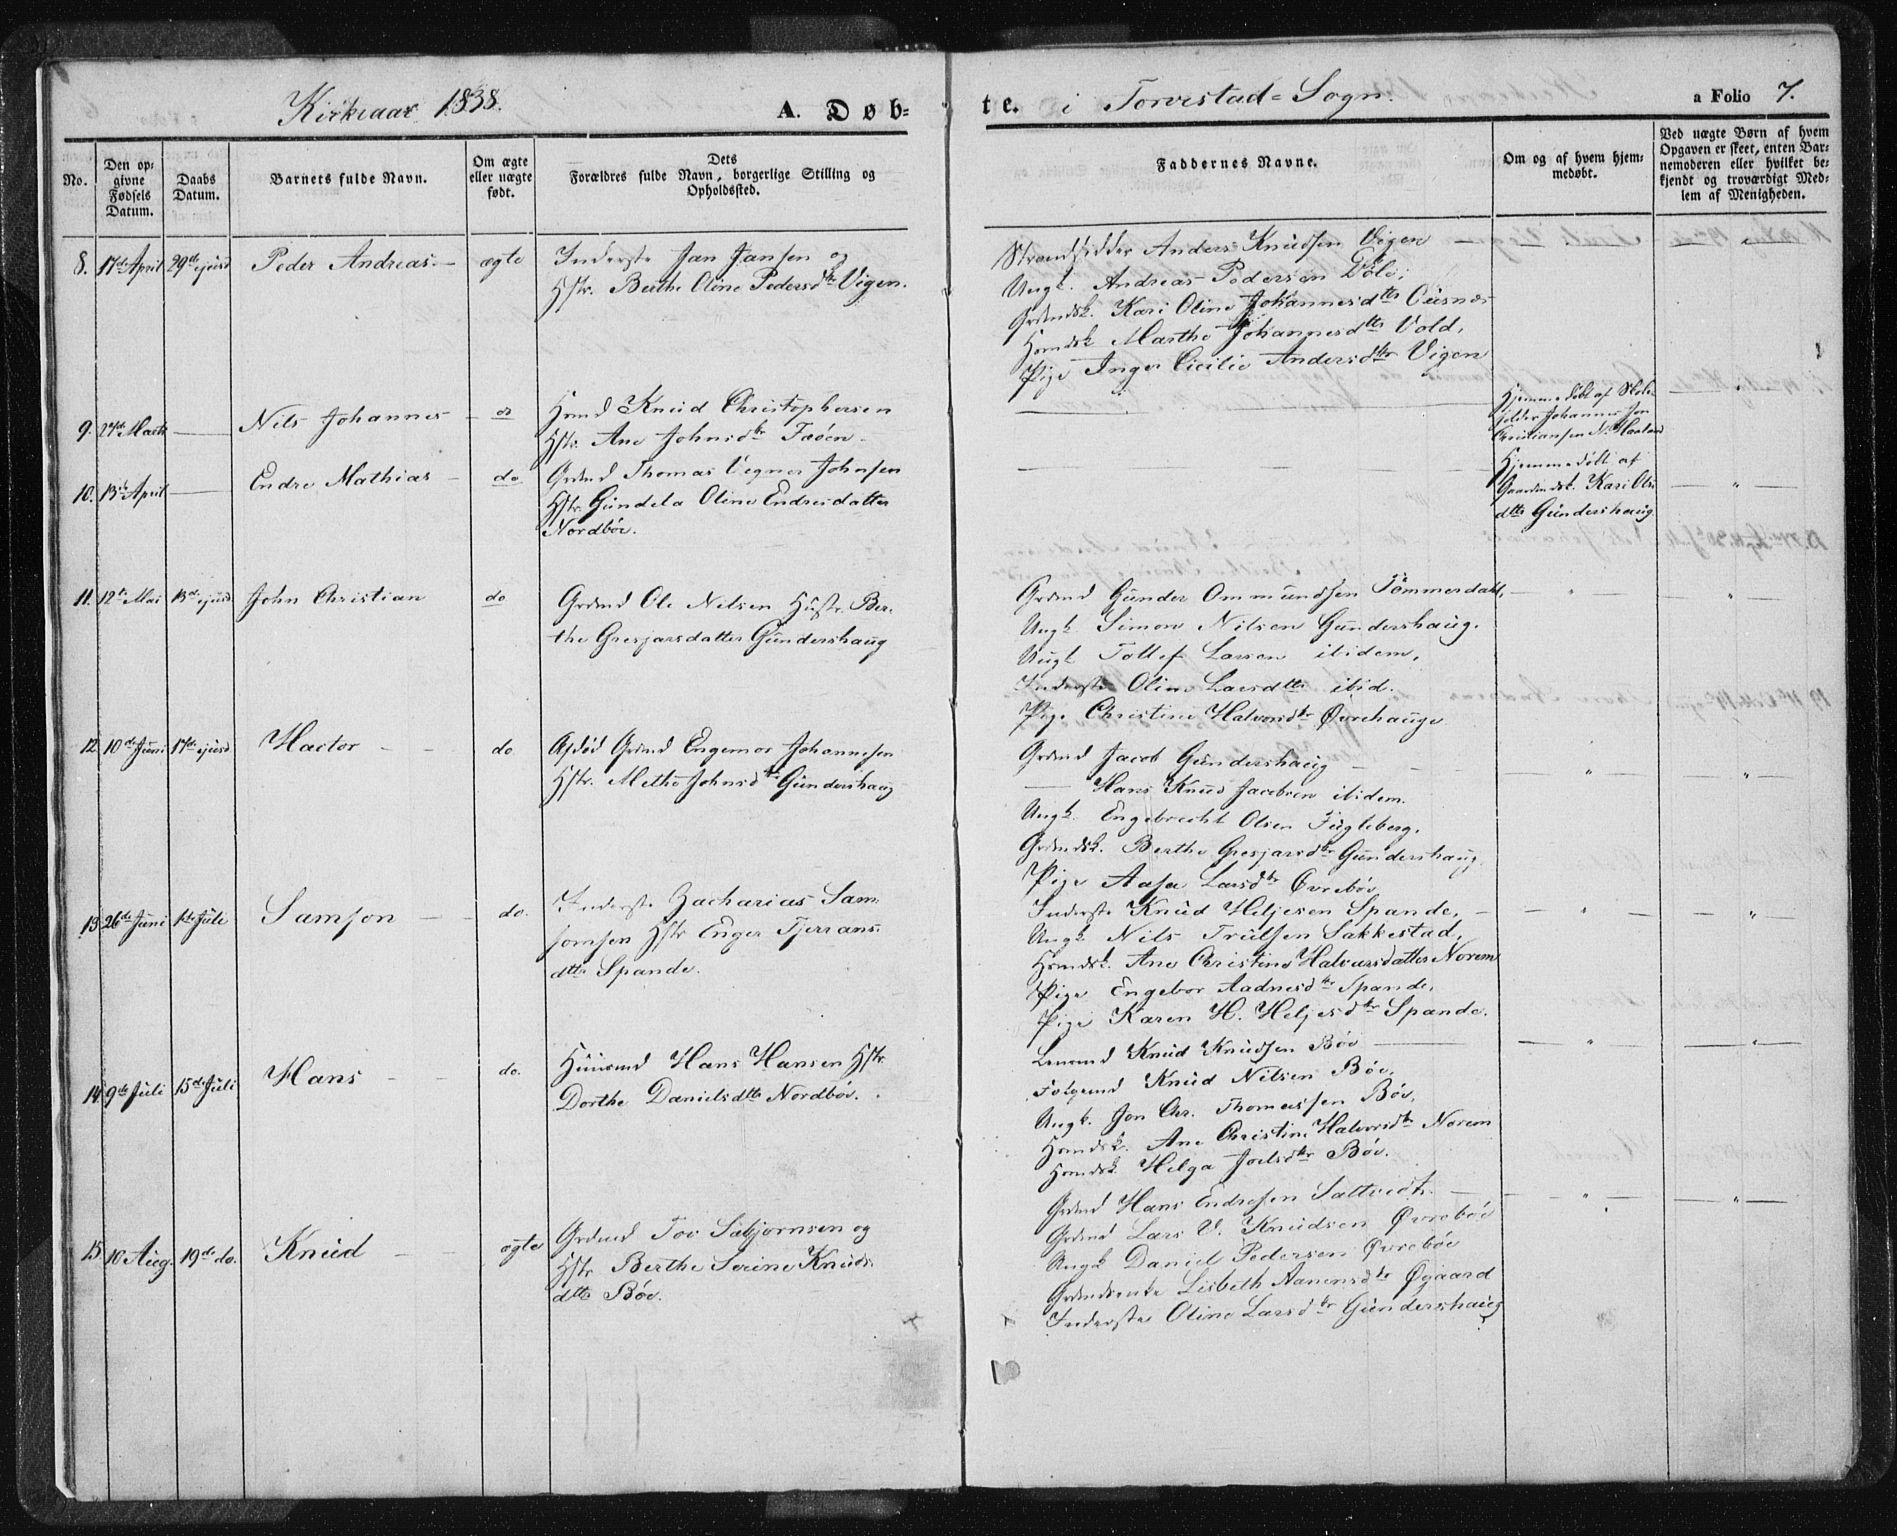 Kirkeaar 1838.
A. Døb-
te.
i Torvestad-Sogn.
a Folio 7.
No.
Den op-
givne
Fødsels
Datum.
Daabs
Datum.
Barnets fulde Navn.
Om ægte
eller uægte
født.
Dets
Forældres fulde Navn, borgerlige Stilling og
Opholdssted.
Faddernes Navne.
Om og af hvem hjem-
medøbt.
Ved uægte Børn af hvem
Opgaven er skeet, enten Bar-
nemoderen eller hvilket be-
kjendt og troværdigt Med-
lem af Menigheden.
8. 17de April 29de ejusd Peder Andreas. ægte
Inderste Jan Jansen og
Hstr. Berthe Oline Pedersdtr Vigen.
Strandsidder Anders Knudsen Vigen
Ungk. Andreas Pedersen
Grdmdsk. Kari Oline Johannesdtr
Hsmdsk Marthe Johannesdtr Vold,
Pige Inger Cicilie Andersdtr Vigen
9. 27de Marts Nils Johannes
Hsmd Knud Christophersen
Hstr. Ane Johnsdtr
Hjemmedøbt af Skole-
holder Johannes Jon
Christiansen N.
10. 13de April Endre Mathias do
Grdmd Thomas Vegner Johnsen
Hstr. Gundela Oline Endresdatter
Nordbøe.
Hjemmedøbt af
Gaardmdsk. Kari Ols
dtr Gundershaug.
11. 12te Mai 13de ejusd John Christian do
Grdmd Ole Nilsen Hustr. Ber-
the Gresjarsdatter Gundershaug
Grdmd Gunder Ommundsen Tömmerdahl,
Ungk Simon Nilsen Gundershaug.
Ungk Tollef Larsen ibidem,
Inderste Oline Larsdtr ibid.
Pige Christine Halvorsdtr Øvrehauge
12 10de Juni 17de ejusd Hactor do
Afdød Grdmd Engemor Johannesen
Hstr. Methe Johnsdtr Gundershaug
Grdmd Jacob Gundershaug
Hans Knud Jacobsen ibidem.
Ungk. Engebrecht Olsen Fugleberg,
Grdmdsk. Berthe Gresjarsdtr Gundershaug
Pige Aasa Larsdtr Øvrebøe
13 26de Juni 1ste Juli Samson do.
Inderste Zacharias Sam-
sonsen Hstr Enger Tjerrans-
dtr Spande.
Inderste Knud Heljesen Spande,
Ungk Nils Trulsen Sakkestad,
Hsmdsk. Ane Christine Halvorsdatter Norem
Pige Engebor Aadnesdtr Spande,
Pige Karen H. Heljesdtr Spande.
14 9de Juli 15de Juli Hans do.
Huusmd Hans Hansen Hstr.
Dorthe Danielsdtr Nordbøe.
Knud Knudsen Bøe
Knud Nilsen Bøe,
Ungk. Jon Chr. Thomassen Bøe,
Hsmdsk. Ane Christine Halvorsdtr Norem
Hsmdsk. Helga Joelsdtr Bøe.
15 10 Aug. 19de do. Knud ægte
Grdmd Tov Sebjørnsen og
Hstr Berthe Serine Knuds-
dtr Bøe.
Grdmd Hans Endresen Saltvedt.
Grdmd Lars V. Knudsen Øvrebøe
Ungk Daniel Pedersen Øvrebøe
Grdmdsenke Lisbeth Aanensdtr Øgaard
Inderste Oline Larsdtr Gundershaug